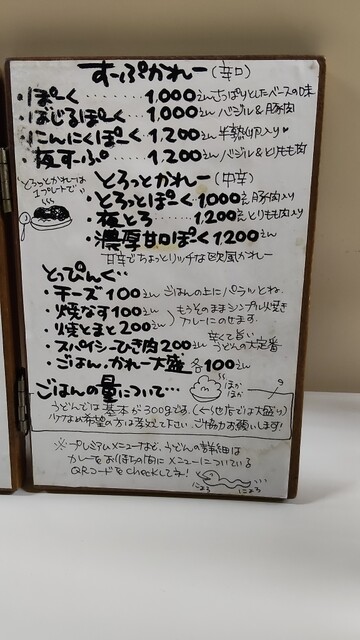 すーぷかれー(辛口)
・ぽーく……… 1,000えん さっぱりとしたベースの味
・ばじるぽーく…… 1,000えん バジル&豚肉
・にんにくぽーく… 1,200えん 半熟 入り♥
・極すーぷ…… 1,200えん バジル&とりもも肉
とろっとかれー(中辛)
とろっとかれーは
1プレートで
・とろっとぽーく 1,000えん 豚肉入り
・極とろ…… 1,200えん とりもも肉入り
・濃厚甘口ぽーく 1,200えん
甘辛でちょっとリッチな欧風かれー
とっぴんぐ…
・チーズ100えん ごはんの上にパラッとね。
・焼なす100えん もうそのままシンプルに焼き
・焼とまと200えん カレーにのせます。
・スパイシーひき肉200えん 辛くて旨い うどんの大定番
・ごはん・かれー大盛 各100えん
ごはんの量について…
ほかほか
うどんでは基本が300gです。(くら 店では大盛り)
少なめ希望の方は教えて下さい。ご協力お願いします!
※プレミアムメニューなど、うどんの詳細は
カレーをお待ちの間にメニューについている
QRコードをcheckしてネ!
にょろ にょろ